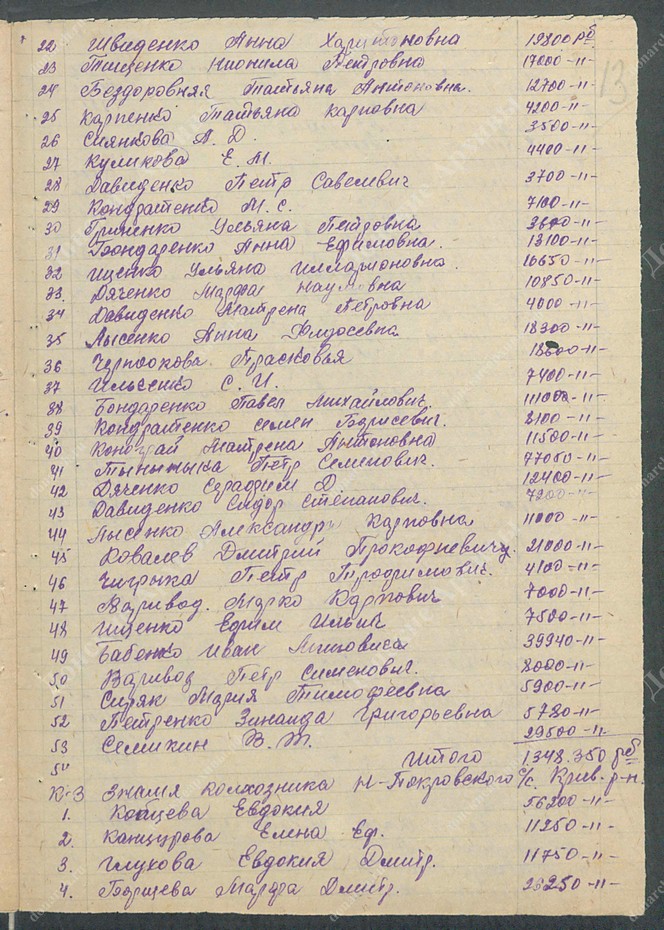 13
22 Швиденко Анна Харитоновна 19800 рб
23 Тищенко Неонила Петровна 17000-11-
24 Бездоровняя Татьяна Антоновна. 12700-11-
25 Карпенко Татьяна карповна 4200-11-
26 Сиянкова А. Д. 3500-11-
27 Куликова Е. М. 4400-11-
28 Давиденко Петр Савелевич 3700-11-
29 Кондратенко М. С. 7100-11-
30 Гриценко Ульяна Петровна 11-
31 Бондаренко Анна Ефимовна. 13100-11-
32 Ищенко Ульяна Иллиарионовна. 16650-11-
33. Дяченко Марфа Наумовна 10850-11-
34 Давиденко Матрена Петровна 4000-11-
35 Лысенко Анна Федосеевна 18300-11-
36 Прасковья -11-
37 С. И. 7400-11-
38 Бондаренко Павел Михайлович. -11-
39 Кондратенко семен Борисевич. 8100-11-
40 Матрена Антоновна 11500-11-
41 Петр Семенович. 77050-11-
42 Дяченко Серафим Д. 12400-11-
43 Давиденко Сидор Степанович. -11-
44 Лысенко Александра Карповна 11000-11-
45 Ковалев Дмитрий Прокофиевичу. 21000-11-
46 Чигрика Петр Трофимович. 4100-11-
47 Варивод. Марко Карпович 7000-11-
48 Ищенко Ефим Ильич 7500-11-
49 Бабенко Иван 39940-11-
50 Варивод Петр Семенович. 8000-11-
51 Сиряк Мария Тимофеевна 5900-11-
52 Петренко Зинаида Григорьевна 5780-11-
53 Семикин В. Т. 29500-11-
54 Итого 1.348.350 рб
К-З колхозника Н-Покровского с/с. Крив. р-н.
1. Евдокия 56200-11-
2. Канцурова Елена Еф. 11250-11-
3. Глухова Евдокия Дмитр. 11750-11-
4. Борщева Марфа Дмитр. 26250-11-